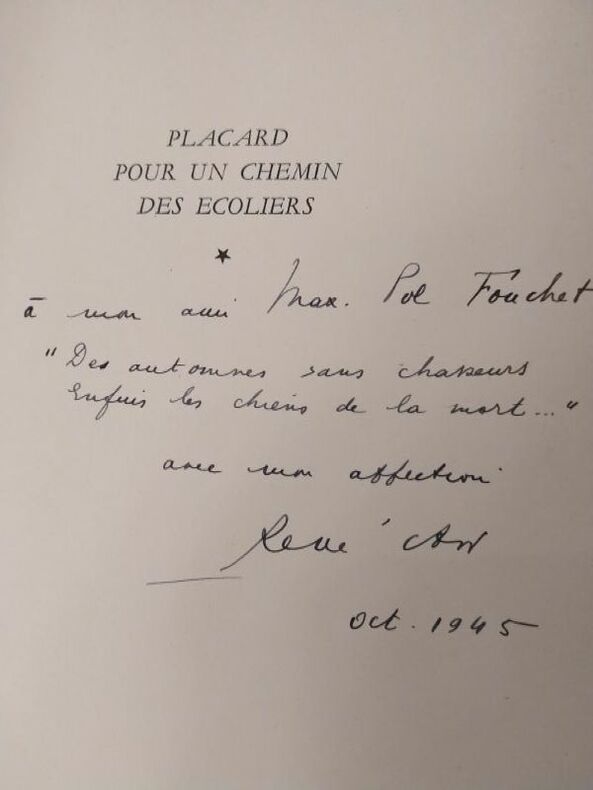 PLACARD
POUR UN CHEMIN
DES ECOLIERS
★
à mon ami Max. Pol Fouchet
"Des automnes sans chasseurs
Enfuis les chiens de la mort..."
avec mon affection
René Char
oct. 1945